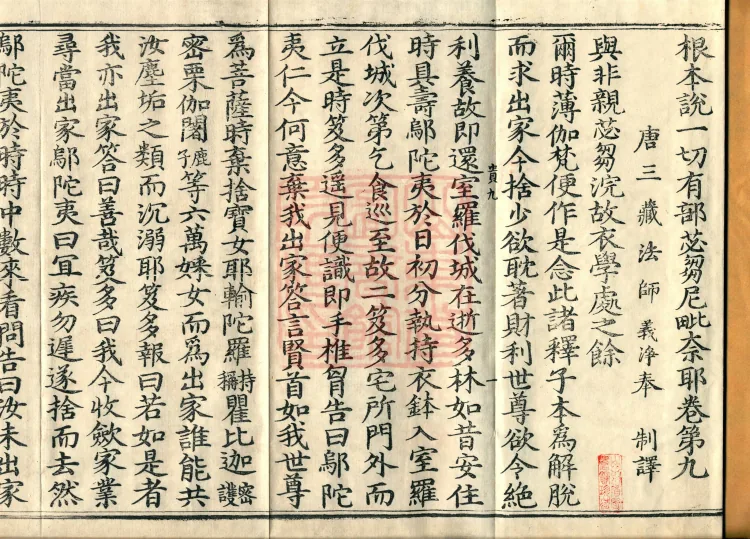 根本說一切有部苾芻尼毗奈耶卷第九
唐三藏法師義淨奉 制譯
與非親苾芻浣故衣學處之餘
爾時薄伽梵便作是念此諸釋子本爲解脫
而求出家今捨少欲耽著財利世尊欲令絶
利養故即還室羅伐城在逝多林如昔安住
時具壽鄔陀夷於日初分執持衣鉢入室羅
伐城次第乞食巡至故二笈多宅所門外而
立是時笈多遥見便識即手椎胷告曰鄔陀
夷仁今何意棄我出家答言賢首如我世尊
爲菩薩時棄捨寶女耶輸陀羅持稱瞿比迦密護
密栗伽闍鹿子等六萬婇女而爲出家誰能共
汝塵垢之類而沉溺耶笈多報曰若如是者
我亦出家答曰善哉笈多曰我今收斂家業
尋當出家鄔陀夷曰冝疾勿遲遂捨而去然
鄔陀夷於時時中數來看問告曰汝未出家